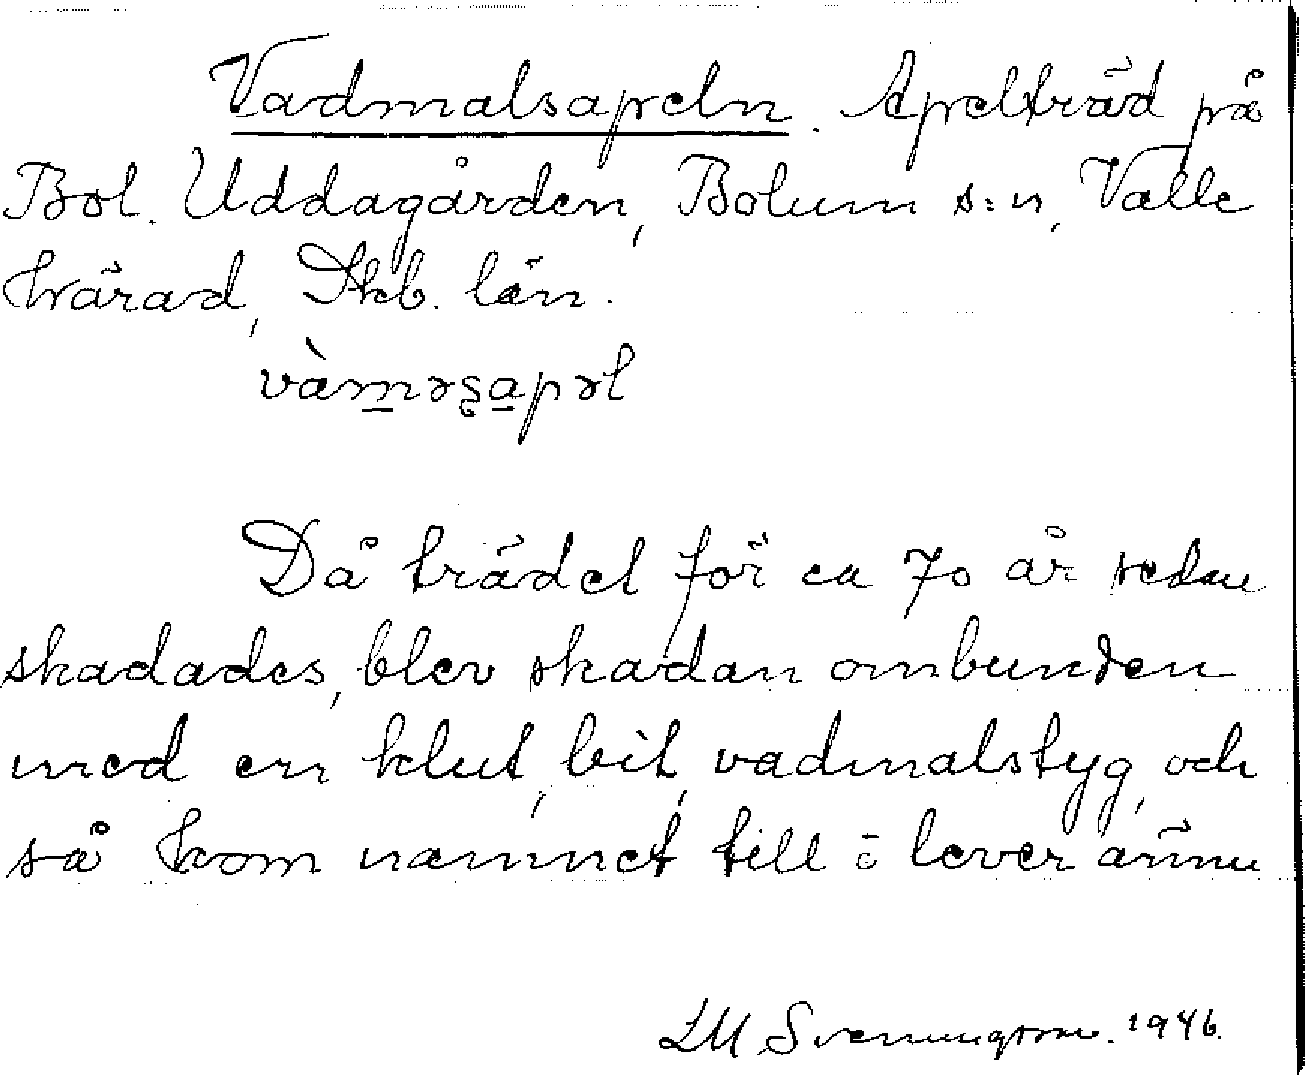 Vadmalsapeln. Apelträd på
Bol. Uddagården, Bolum s:n, Valle
härad, Skb. län.
vàm̲əʂa̲pəl
Då trädet för ca 70 år sedan
skadades, blev skadan ombunden
med en klut, bit, vadmalstyg, och
så kom namnet till o lever ännu
LM Svenungsson. 1946.